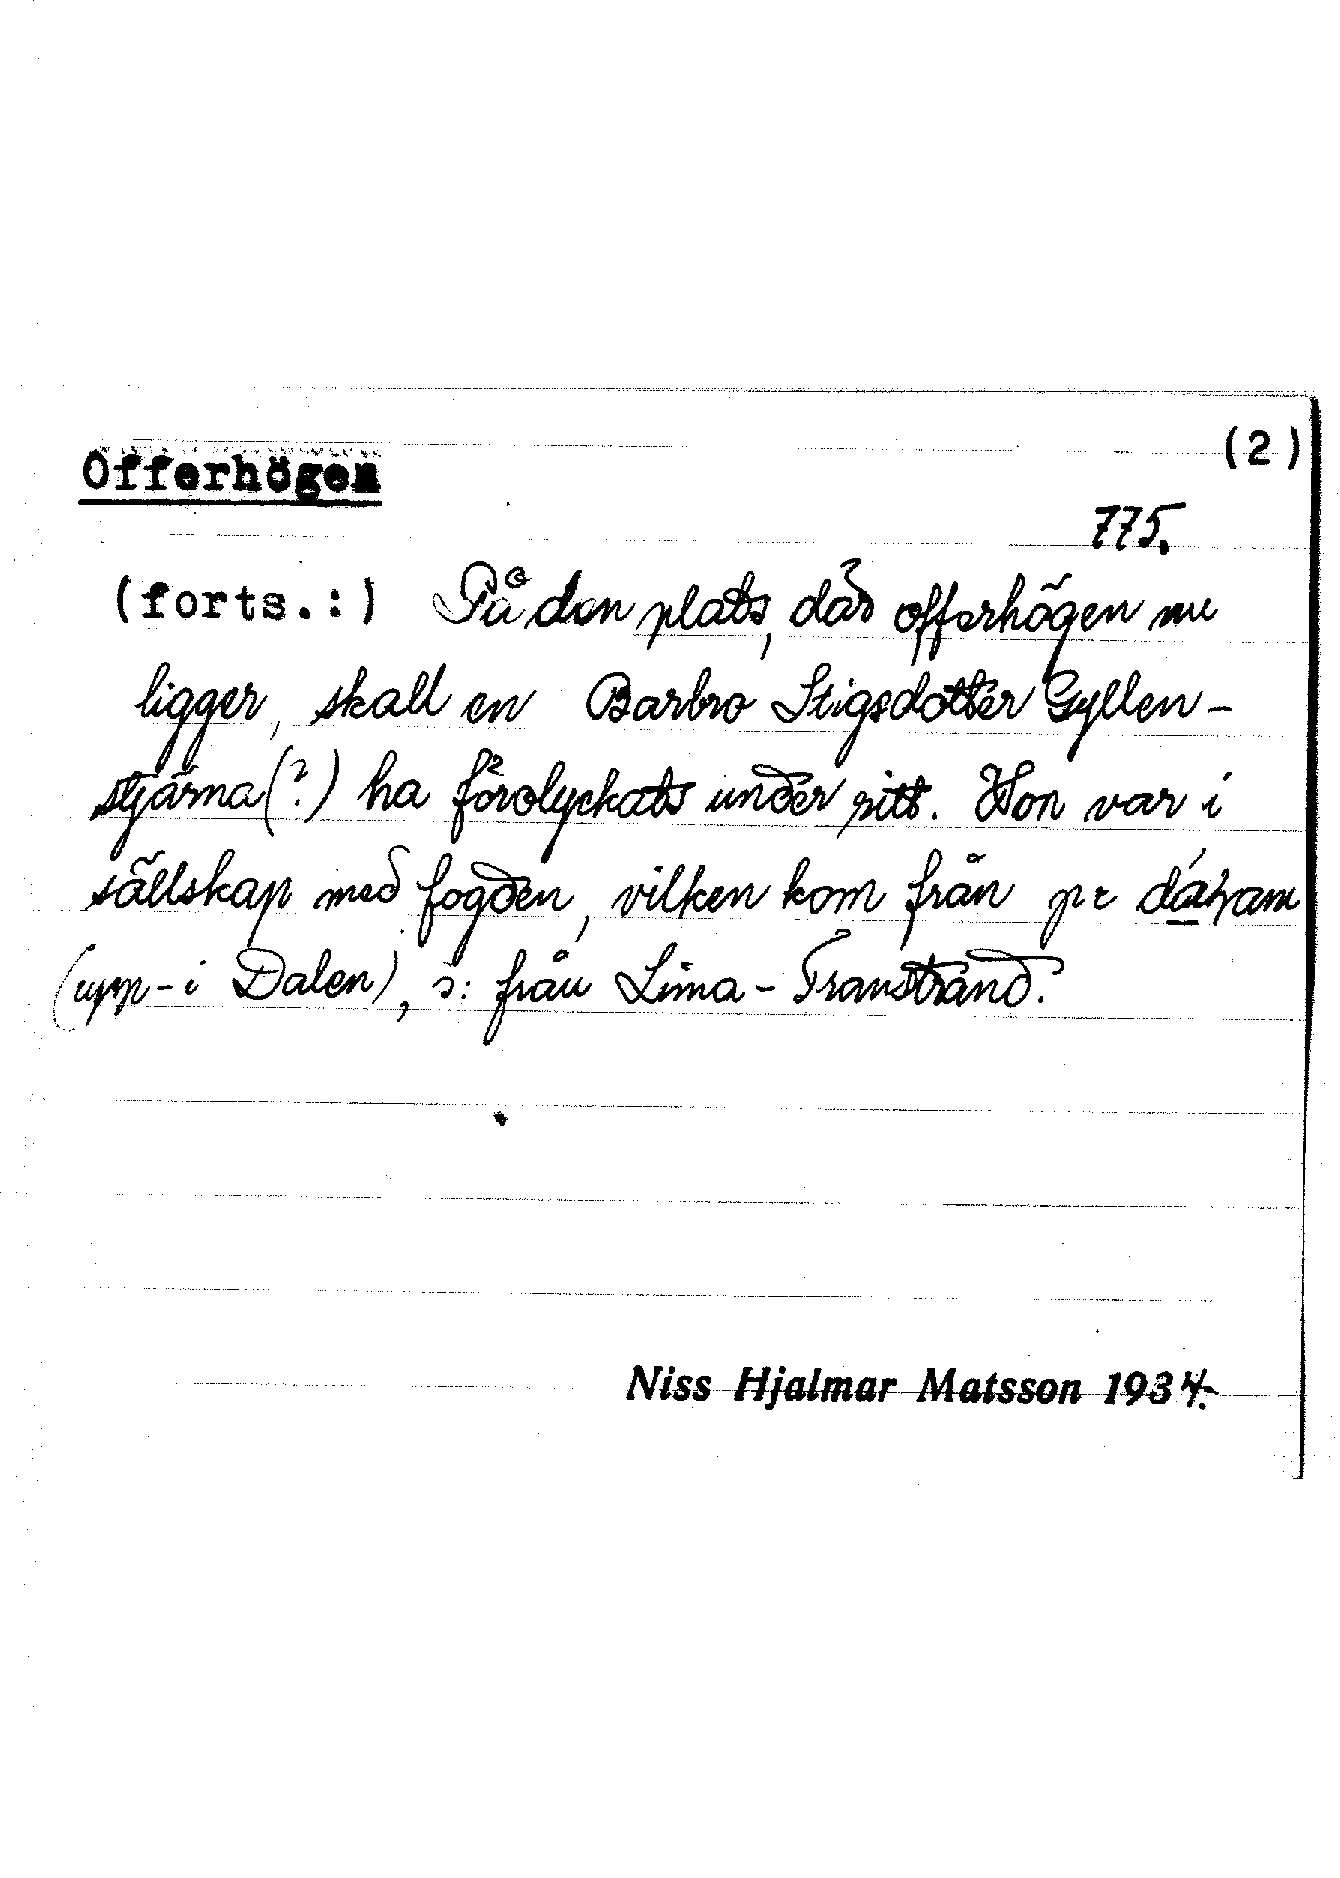 (2)
Offerhögen
775.
(forts.:) På den plats, där offerhögen nu
ligger, skall en Barbro Stigsdotter Gyllen-
stjärna(?) ha förolyckats under ritt. Hon var i
sällskap med fogden, vilken kom från
(upp-i Dalen), ɔ: från Lima-Transtrand.
Niss Hjalmar Matsson 1934.